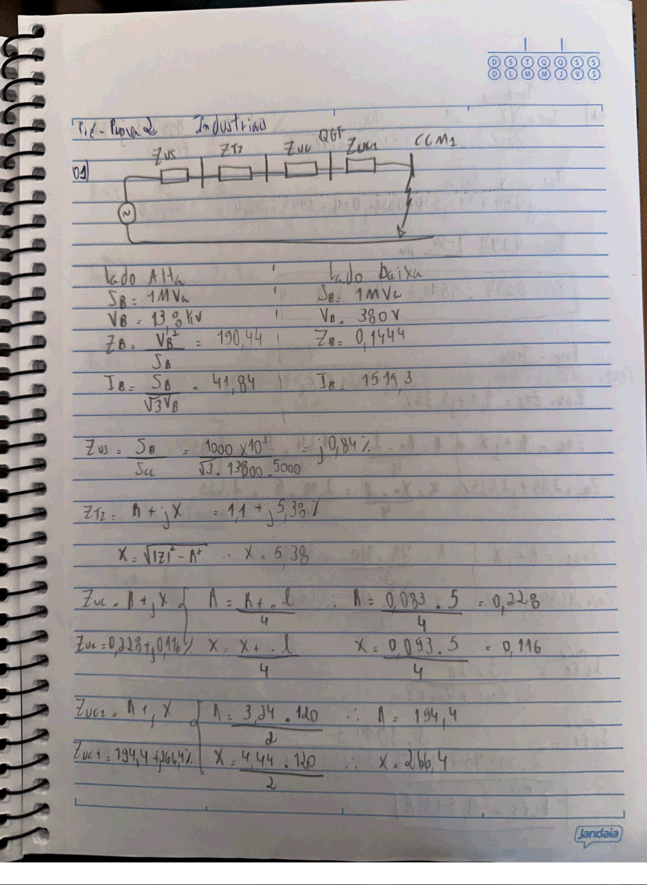 D S T Q Q S S
D L M M J V S
Prova 2 Industrial
01)
Zus ZT2 Zuc QGF Zuc1 CCM1
Lado Alta Lado Baixa
SB = 1MVa SB = 1MVa
VB = 13,8 KV VB = 380V
ZB = VB² / SB = 190,44 ZB = 0,1444
IB = SB / √3 VB = 41,84 IB = 1519,3
Zus = SB / Scc = 1000 x10³ / √3 . 13800 . 5000 = j0,84%
ZT2 = R + jX = 1,1 + j5,38%
X = √|Z|² - R² ∴ X = 5,38
Zuc = R + jX { R = R+ . l / 4 ∴ R = 0,083 . 5 / 4 = 0,228
Zuc = 0,228 + j0,116% X = X+ . l / 4 X = 0,093 . 5 / 4 = 0,116
Zuc1 = R + jX { R = 3,24 . 120 / 2 ∴ R = 194,4
Zuc1 = 194,4 + j266,4% X = 4,44 . 120 / 2 ∴ X = 266,4
Jandaia